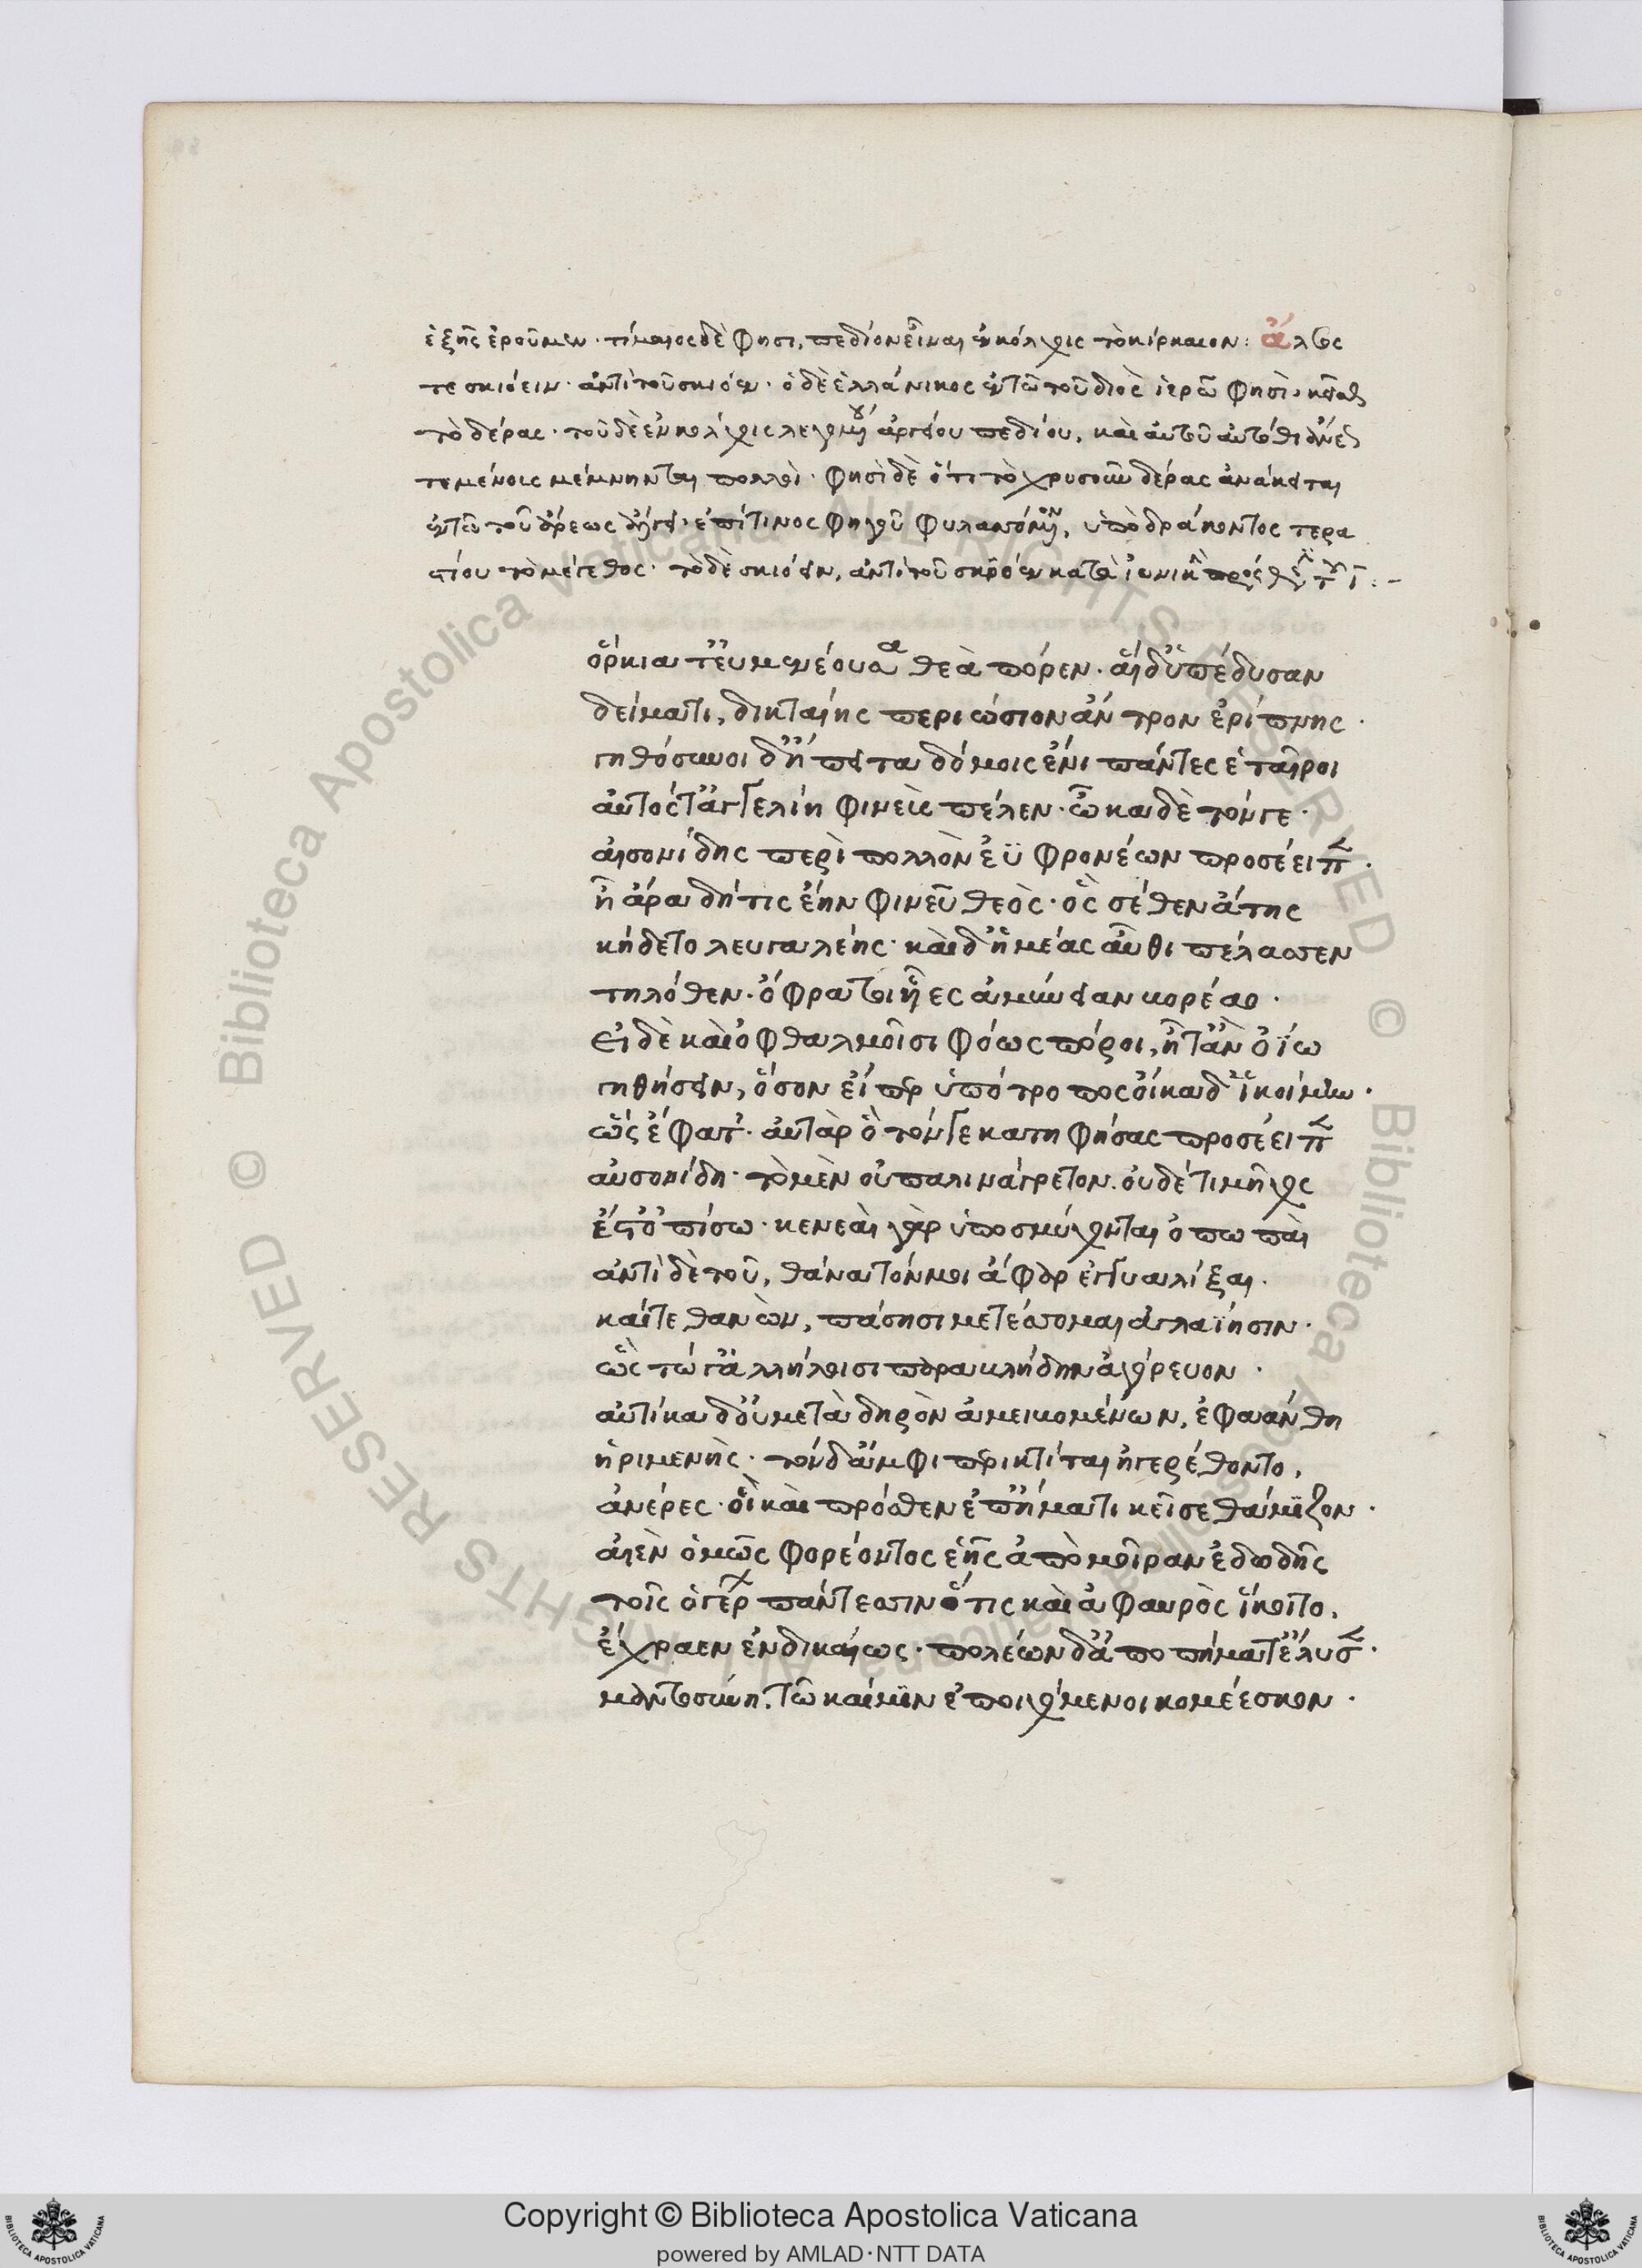 ἑξῆς ἐροῦμεν· τίμαιος δὲ φησι, πεδίον εἶναι ἐν κόλχοις τὸ κίρκαιον: ἄλσος
τε σκιόειν· ἀντὶ τοῦ σκιόεν· ὁ δὲ ἑλλάνικος ἐν τῶ τοῦ διὸς ἱερῶ φησὶ, κεῖσθαι
τὸ δέρας· τοῦ δὲ ἐν κόλχοις λεγομένου ἀρείου πεδίου, καὶ αὐτοῦ αὐτόθι
τεμένοις μέμνηνται πολλοὶ· φησὶ δὲ ὅτι τὸ χρυσοῦν δέρας ἀνάκειται
ἐν τῶ τοῦ ἄρεως ἄλσει· ἐπί τινος φηγοῦ φυλασσόμενον, ὑπὸ δράκοντος τερα
στίου τὸ μέγεθος· τὸ δὲ σκιόειν, ἀντὶ τοῦ σκιρόεν κατὰ ἰωνικὴν πρόσθεσιν τοῦ ι :–
ὅρκια τ' εὐμενέουσα θεὰ πόρεν· αἱ δ' ὑπέδυσαν
δείματι, δικταίης περιώσιον ἄντρον ἐρίπνης·
γηθόσυνοι δ' ἤπειτα δόμοις ἔνι πάντες ἑταῖροι
αὐτός τ' ἀγγελίη φινεὺς πέλεν· ὦκα δὲ τόνγε·
αἰσονίδης περὶ πολλὸν ἐῢ φρονέων προσέειπεν·
ἦ ἄρα δή τις ἔην φινεῦ θεὸς· ὃς σέθεν ἄτης
κήδετο λευγαλέης· καὶ δ' ἡμέας αὖθι πέλασσεν
τηλόθεν· ὄφρα τοι υἷες ἀμύνειαν βορέαο·
εἰ δὲ καὶ ὀφθαλμοῖσι φόως πόροι, ἦ τ' ἂν ὀΐω
γηθήσειν, ὅσον εἴπερ ὑπότροπος οἴκαδ' ἱκοίμην·
ὣς ἔφατ'· αὐτὰρ ὃ τόνγε κατηφήσας προσέειπεν
αἰσονίδη· τὸ μὲν οὐ παλινάγρετον. οὐδέ τι μῆχος
ἔστ' ὀπίσω· κενεαὶ γὰρ ὑποσμύχονται ὀπωπαὶ
ἀντὶ δὲ τοῦ, θάνατόν μοι ἄφαρ ἐγγυαλίξαι.
καί τε θανὼν, πάσῃσι μετέσσομαι ἀγλαΐησιν·
ὣς τώ γ' ἀλλήλοισι παρακλήδην ἀγόρευον·
αὐτίκα δ' οὐ μετὰ δηρὸν ἀμειβομένων, ἐφαάνθη
ἠριγενὴς· τὸν δ' ἀμφὶ περικτίται ἠγερέθοντο,
ἀνέρες· οἳ καὶ πρόσθεν ἐπ' ἤματι κεῖσε θάμιζον·
αἰὲν ὁμῶς φορέοντος ἑῆς ἀπὸ μοῖραν ἐδωδῆς
τοῖς ὁ γέρων πάντεσσιν ὅτις καὶ ἀφαυρὸς ἵκοιτο,
ἔχραεν ἐνδικαίως· πολέων δ' ἀπο πήματ' ἔλυσεν·
μαντοσύνη. τῶ καί μιν ἐποιχόμενοι κομέεσκον·
Copyright © Biblioteca Apostolica Vaticana
powered by AMLAD·NTT DATA